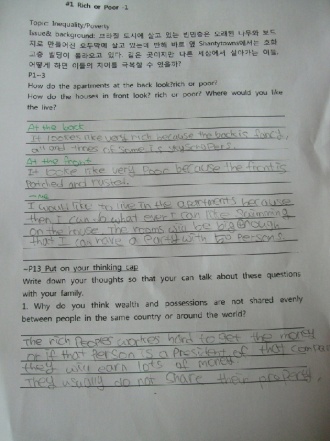 #1 Rich or Poor -1
Topic: Inequality/Poverty
Issue& background: 브라질 도시에 살고 있는 빈민층은 오래된 나무와 보드
지로 만들어진 오두막에 살고 있는데 반해 바로 옆 Shantytowns에서는 호화
고층 빌딩이 올라오고 있다. 같은 곳이지만 다른 세상에서 살아가는 이들,
어떻게 하면 이들의 격차를 극복할 수 있을까?
P1~3
How do the apartments at the back look?rich or poor?
How do the houses in front look? rich or poor? Where would you like
the live?
At the back
It lookes like very rich because the back is fancy,
and some
At the front
It looke like very Poor because the front is
Painted and rusted.
~Me
I would like to live in the apartments because
then I can do what ever I can like Swimming
on the house. The rooms will be big enough
that I can have a Party with 60 Persons
~P13 Put on your thinking cap
Write down your thoughts so that you can talk about these questions
with your family.
1. Why do you think wealth and possessions are not shared evenly
between people in the same country or around the world?
The rich Peoples workes hard to get the money
or if that Person is a President of they
they will earn lots of money.
They usually do not share their property.